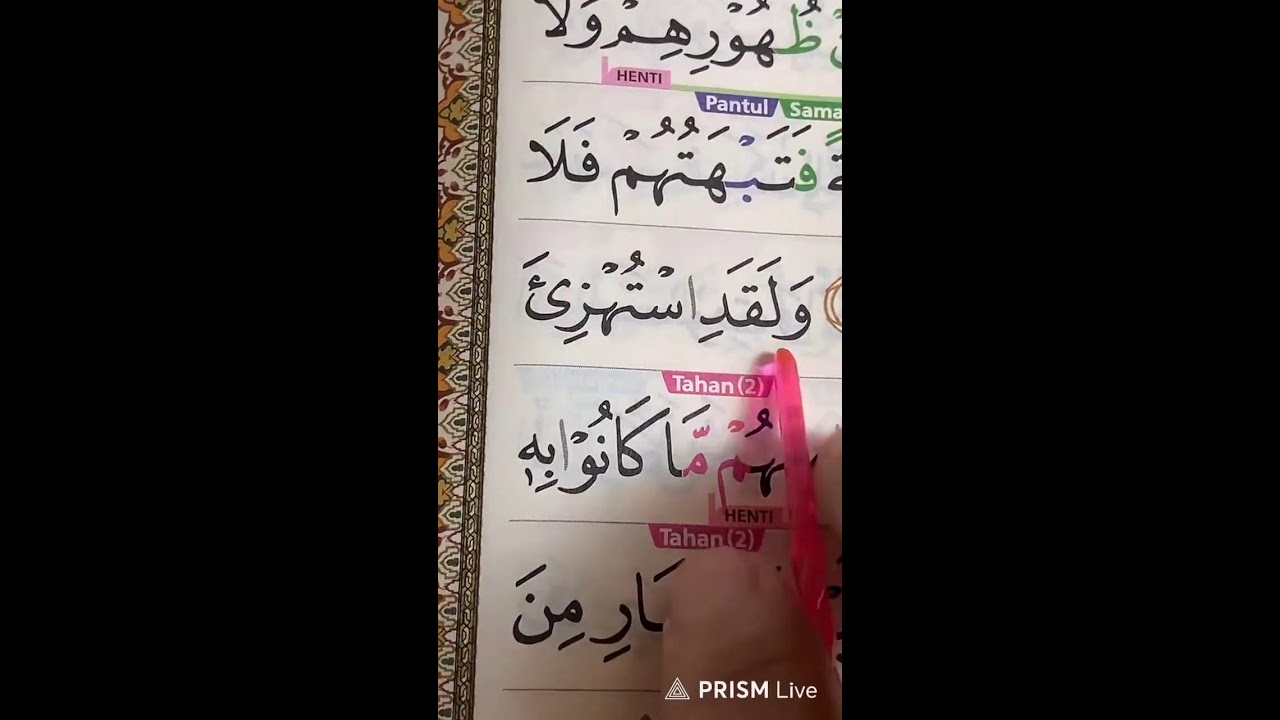 ظُهُوْرِهِمْ وَلَا
HENTI
Pantul Sama
فَتَبْهَتُهُمْ فَلَا
وَلَقَدِ اسْتُهْزِئَ
Tahan (2)
هُمْ مَّا كَانُوْا بِهٖ
HENTI
Tahan (2)
ـَارِ مِنَ
PRISM Live